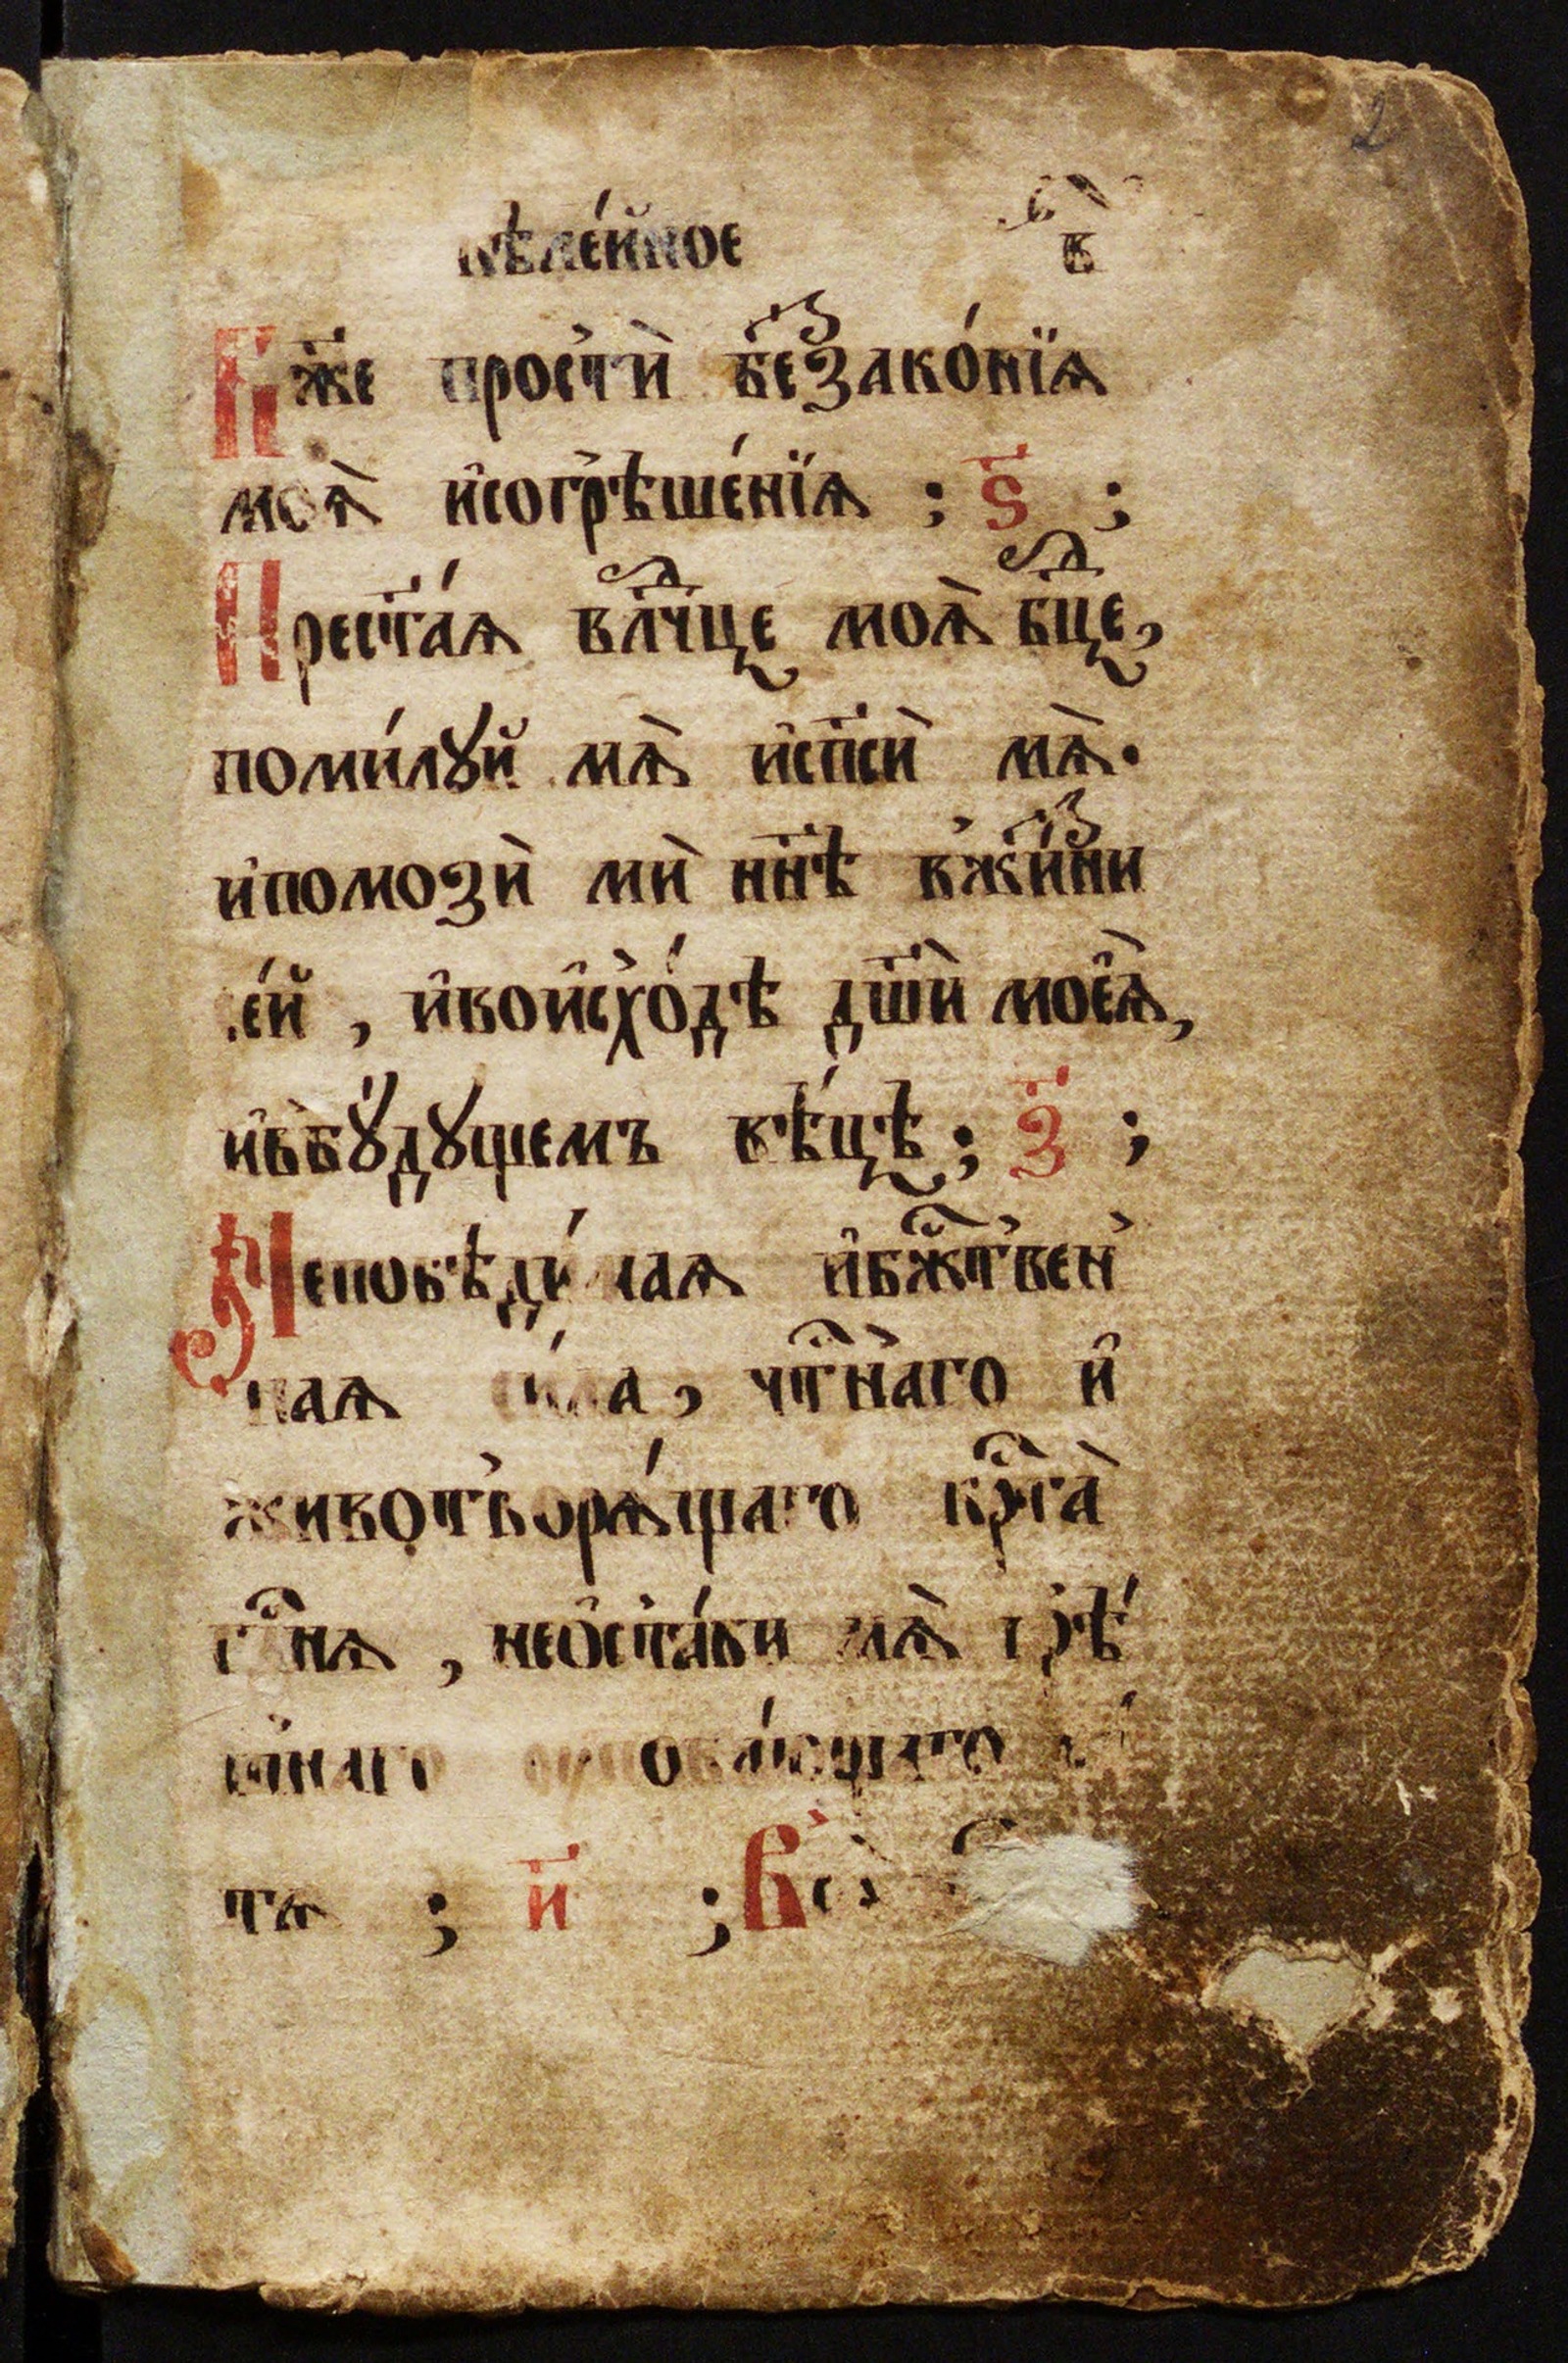 2
кѣле́йное
в҃
Бж҃е простѝ беззако́нїѧ
моѧ̀ и҆согрѣше́нїѧ ; ѕ҃ ;
Прест҃а́ѧ влⷣчце моѧ̀ бцⷣе,
поми́лꙋй мѧ̀ и҆сп҃сѝ мѧ̀.
и҆помозѝ мѝ нн҃ѣ вжи́зни
се́й , и҆вои҆схо́дѣ дш҃ѝ моеѧ̀,
и҆вбꙋ́дꙋщемъ вѣ́цѣ ; з҃ ;
Непобѣди́маѧ и҆бжⷭ҇твен
наѧ си́ла, чтⷭ҇наго и҆
животворѧ́щаго крⷭ҇та̀
гⷭ҇нѧ , неѡ҆ста́ви мѧ̀ грѣ́
шнаго оуповающаго
тѧ ; и҃ ; Всѧ̀